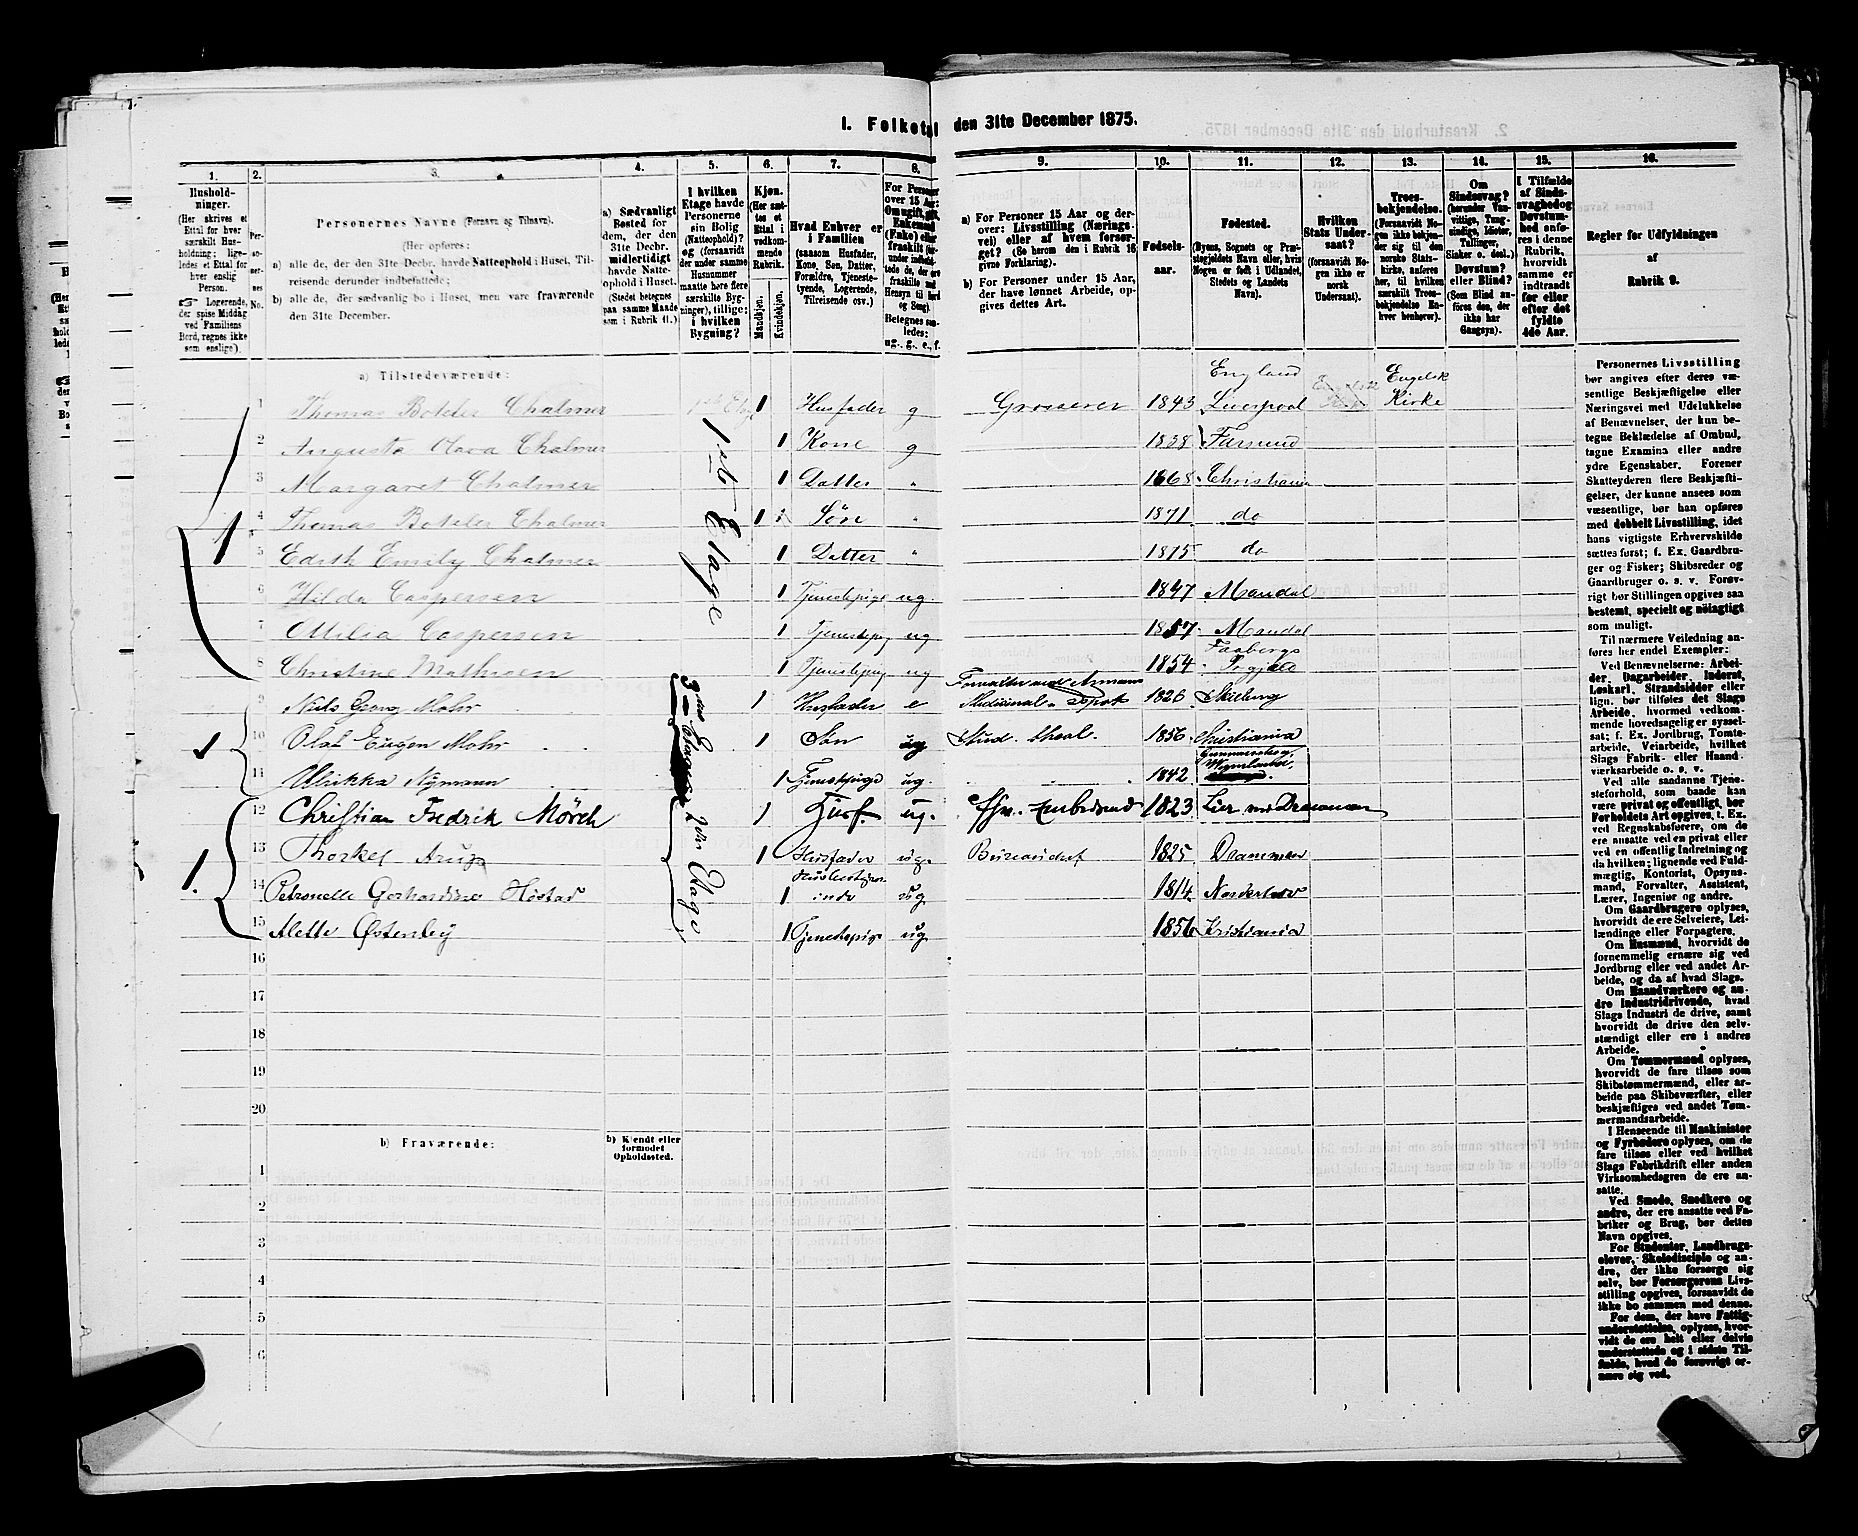 I. Folketal den 31te December 1875.
1. 2. 3. 4. 5. 6. 7. 8. 9. 10. 11. 12. 13. 14. 15. 16.
Hushold-
ninger.
(Her skrives et
Ettal for hver
særskilt Hus-
holdning; lige-
ledes et Ettal for
hver enslig
Person.
☞ Logerende,
der spise Middag
ved Familiens
Bord, regnes ikke
som enslige).
Per-
soner-
nes
No.
Personernes Navne (Fornavn og Tilnavn).
(Her opføres:
a) alle de, der den 31te Decbr. havde Natteophold i Huset, Til-
reisende derunder indbefattede;
b) alle de, der sædvanlig bo i Huset, men vare fraværende
den 31te December.
a) Sædvanligt
Bosted for
dem, der den
31te Decbr.
midlertidigt
havde Natte-
ophold i Huset.
(Stedet betegnes
paa samme Maade
som i Rubrik 11.)
I hvilken
Etage havde
Personerne
sin Bolig
(Natteophold)?
og (forsaavidt
der under samme
Husnummer
maatte høre flere
særskilte Byg-
ninger), tillige:
i hvilken
Bygning?
Kjøn.
(Her sæt-
tes et
Ettal i
vedkom-
mende
Rubrik.
Mandkjøn.
Kvindekjøn.
Hvad Enhver er
i Familien
(saasom Husfader,
Kone, Søn, Datter,
Forældre, Tjeneste-
tyende, Logerende,
Tilreisende osv.)
a) For Personer 15 Aar og der-
over: Livsstilling (Nærings-
vei) eller af hvem forsør-
get? (Se herom den i Rubrik 16
givne Forklaring).
b) For Personer under 15 Aar,
der have lønnet Arbeide, op-
gives dettes Art.
Fødsels-
aar.
Fødested.
(Byens, Sognets og Præ-
stegjeldets Navn eller, hvis
Nogen er født i Udlandet,
Stedets og Landets
Navn).
Hvilken
Stats Under-
saat?
(forsaavidt No-
gen ikke er
norsk
Undersaat).
Troes-
bekjendelse.
(Forsaavidt No-
gen ikke bekjen-
der sig til den
norske Stats-
kirke, anføres
her, til hvilken
særskilt Troes-
bekjendelse En-
hver henhører).
Om
Sindssvag?
(herunder Van-
vittige, Tung-
sindige, Idioter,
Tullinger,
Sinker o. desl.).
Døvstum?
eller Blind?
(Som Blind an-
føres den, der
ikke har
Gangsyn).
I Tilfælde
af Sinds-
svaghed og
Døvstum-
hed anfø-
res i denne
Rubrik,
hvorvidt
samme er
indtraadt
før eller
efter det
fyldte
4de Aar.
Regler for Udfyldningen
af
Rubrik 9.
a) Tilstedeværende:
1 Thomas Boteler Chalmer 1 Husfader g Grosserer 1843 England Liverpool Engelsk Kirke
2 Augusta Chalmer 1 Kone g 1838 Farsund
3 Margaret Chalmer 1 Datter 1868 Christiania
4 Thomas Boteler Chalmer 1 Søn 1871 do
5 Edith Emily Chalmer 1 Datter 1875 do
6 Hilda Caspersen 1 Tjenestepige ug. 1847 Mandal
7 Otilia Caspersen 1 Tjenestepig ug 1857 Mandal
8 Christine Mathisen 1 Tjenestepig ug 1854 Faabergs Prgjeld
1ste Etage
9 Niels Georg Mohr 1 Husfader e 1826
10 Olaf Eugen Mohr 1 Søn ug Stud. theol. 1856 Christiania
11 Ulrikka Nymann 1 Tjenestepige ug. 1842
12 Christian Fredrik Mörch 1 Husf. ug. 1823 Lier ved Drammen
13 Thorkel Arup 1 Husfader ug. 1825 Drammen
14 Petronelle Gerhardine Høstad 1 Husbestyrerinde ug. 1814
15 Alette Østenbÿ 1 Tjenestepige ug 1856 Kristiania
2den Etage
16
17
18
19
20
b) Fraværende: b) Kjendt eller
formodet
Opholdssted.
1
2
3
4
5
6
Personernes Livsstilling
bør angives efter deres væ-
sentlige Beskjæftigelse eller
Næringsvei med Udelukkelse
af Benævnelser, der kun be-
tegne Beklædelse af Ombud,
tagne Examina eller andre
ydre Egenskaber. Forener
Skatteyderen flere Beskjæfti-
gelser, der kunne ansees som
væsentlige, bør han opføres
med dobbelt Livsstilling, idet
hans vigtigste Erhvervskilde
sættes først; f. Ex. Gaardbru-
ger og Fisker; Skibsreder og
Gaardbruger o. s. v. Forøv-
rigt bør Stillingen opgives saa
bestemt, specielt og nöiagtigt
som muligt.
Til nærmere Veiledning an-
føres her endel Exempler:
Ved Benævnelserne: Arbei-
der, Dagarbeider, Inderst,
Løskarl, Strandsidder eller
lign. bør tilføies det Slags
Arbeide, hvormed vedkom-
mende hovedsagelig er syssel-
sat; f. Ex. Jordbrug, Tomte-
arbeide, Veiarbeide, hvilket
Slags Fabrik- eller Haand-
værksarbeide o. s. v.
Ved alle saadanne Tjene-
steforhold, som baade kan
være privat og offentligt, bør
Forholdets Art opgives, f. Ex.
ved Regnskabsførere, om de
ere ansatte ved en privat eller
ved en offentlig Indretning og
da hvilken; lignende ved Fuld-
mægtig, Kontorist, Opsyns-
mand, Forvalter, Assistent,
Lærer, Ingeniør og andre.
Om Gaardbrugere oplyses,
hvorvidt de ere Selveiere, Lei-
lændinge eller Forpagtere.
Om Husmænd, hvorvidt de
fornemmelig ernære sig ved
Jordbrug eller ved andet Ar-
beide, og da af hvad Slags.
Om Haandværkere og an-
dre Industridrivende, hvad
Slags Industri de drive, samt
hvorvidt de drive den selv-
stændigt eller ere i andres
Arbeide.
Om Tømmermænd oplyses,
hvorvidt de fare tilsøs som
Skibstømmermænd, eller ar-
beide paa Skibsværfter, eller
beskjæftiges ved andet Tøm-
mermandsarbeide.
I Henseende til Maskinister
og Fyrbødere oplyses, om de
fare tilsøs eller ved hvilket
Slags Fabrikdrift eller anden
Virksomhedsgren de ere an-
satte.
Ved Smede, Snedkere og
andre, der ere ansatte ved Fa-
briker og Brug, bør dettes
Navn opgives.
For Studenter, Landbrugs-
elever, Skoledisciple og an-
dre, der ikke forsørge sig
selv, bør Forsørgerens Livs-
stilling opgives, forsaavidt de
ikke bo sammen med denne.
For dem, der have Fattig-
understøttelse, oplyses, hvor-
vidt de ere helt eller delvis
understøttede og i sidste Til-
fælde, hvad de forøvrigt er-
nære sig ved.